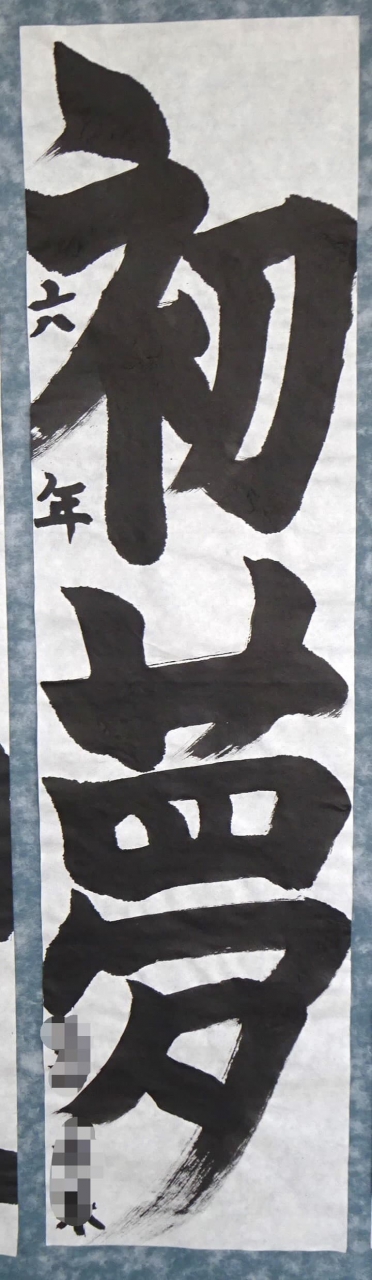 初夢
六年